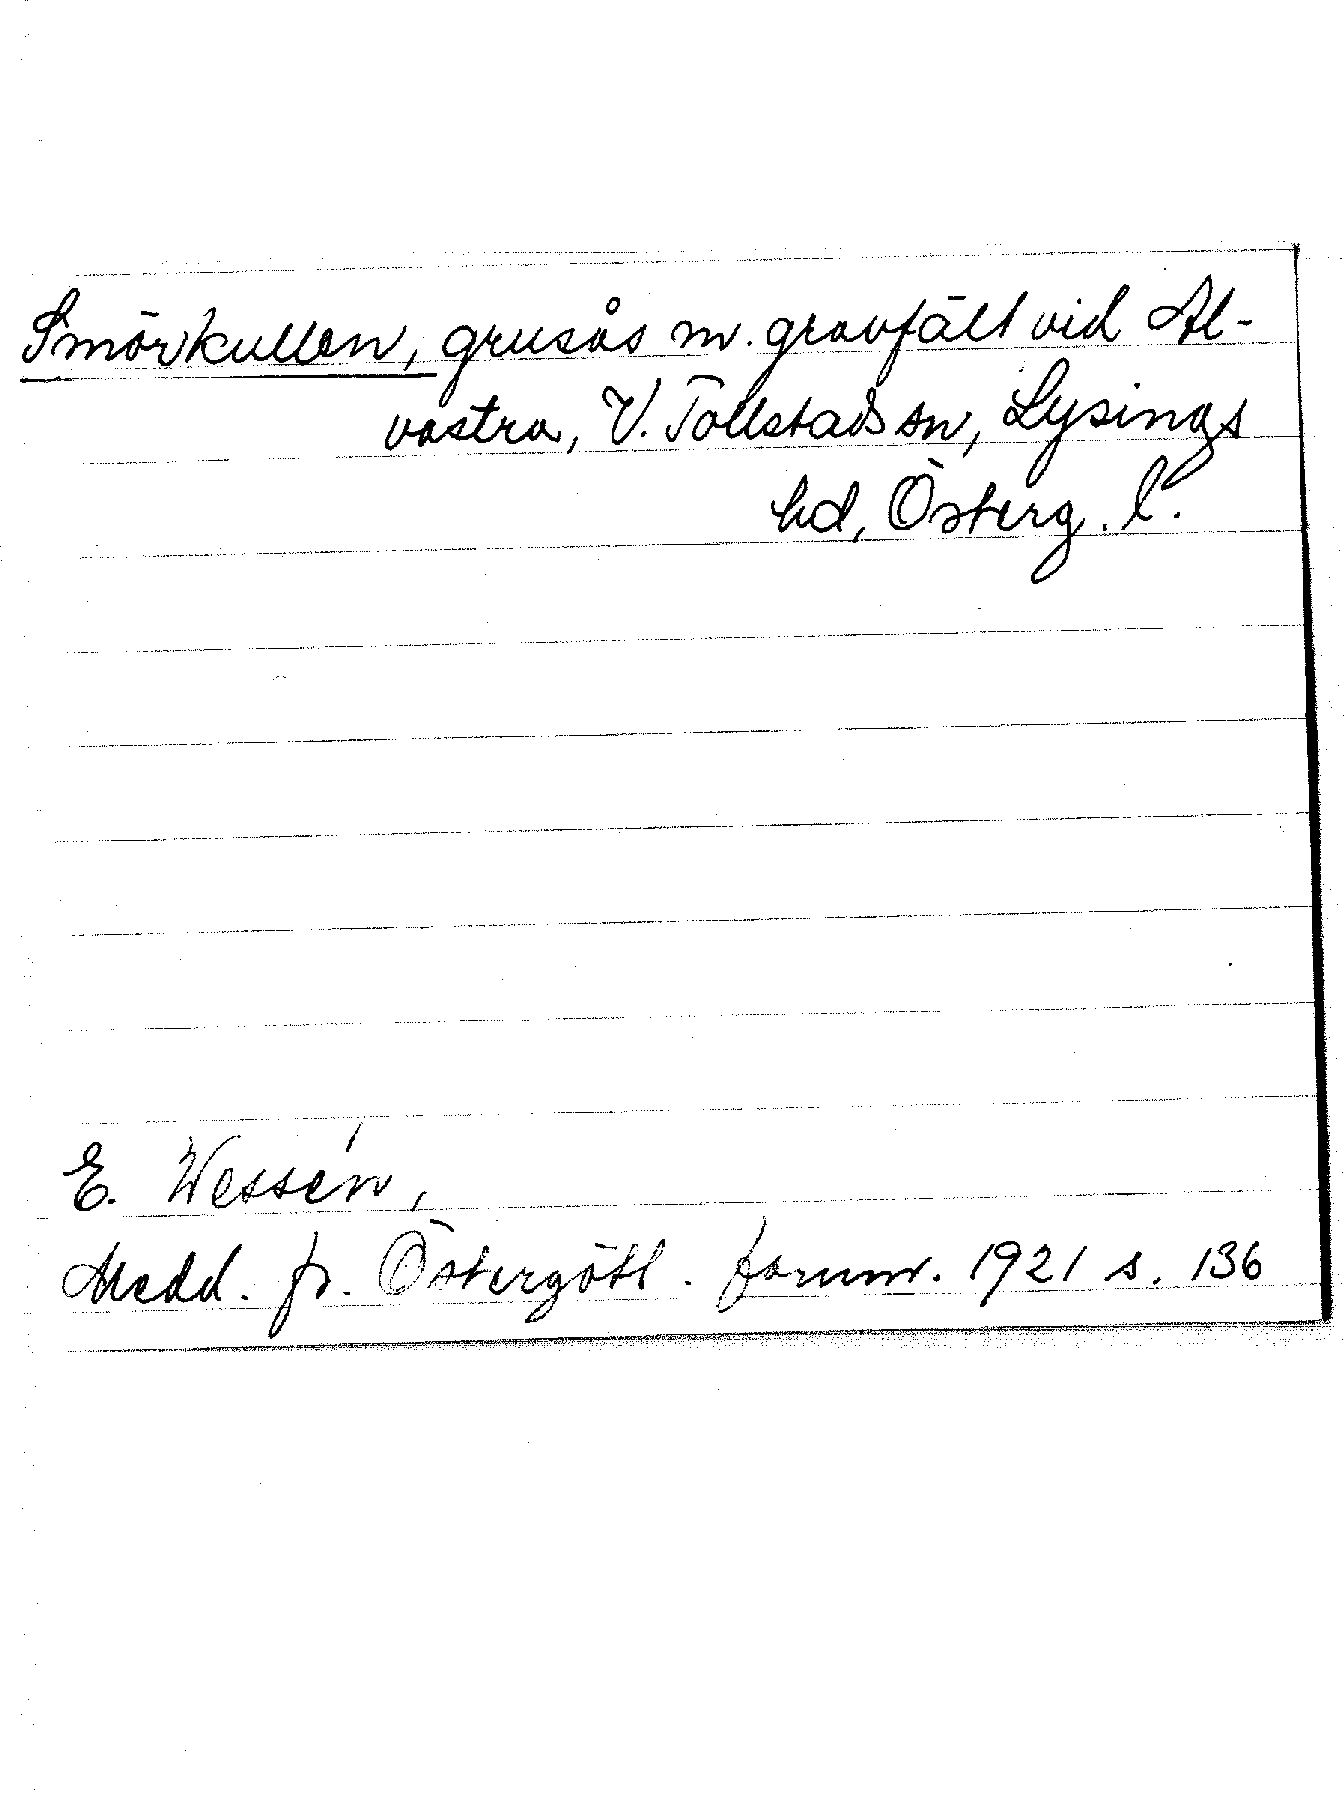 Smörkullen, grusås m. gravfält vid Al-
vastra, V. Tollstads sn, Lysings
hd, Österg. l.
E. Wessén,
Medd. fr. Östergötl. fornm. 1921 s. 136